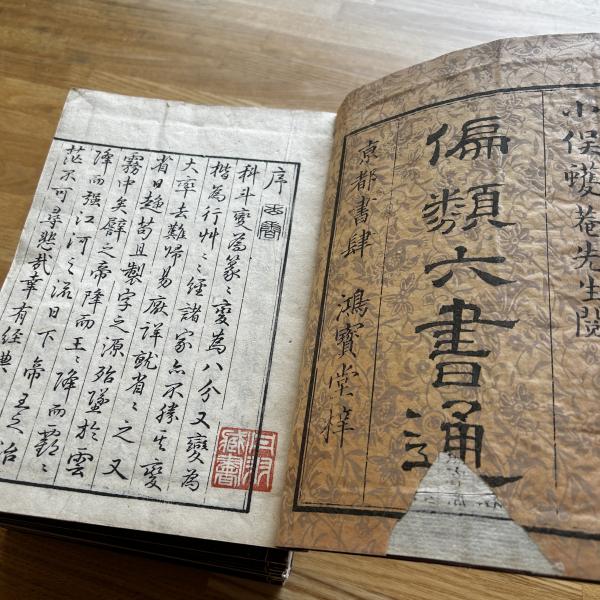 小俣蠖菴先生閲
偏類六書通
京都書肆 鴻寳堂梓
序
科斗變爲篆〻變爲八分又變爲
楷爲行艸〻經諸家点不勝其變
大率去難歸易厭詳就省〻之又
省日趍苟且製字之源殆墜於雲
霧中矣辟之帝降而王〻降而覇〻
降而强江河之流日下帝王之治
茫不可尋悲哉幸有經典